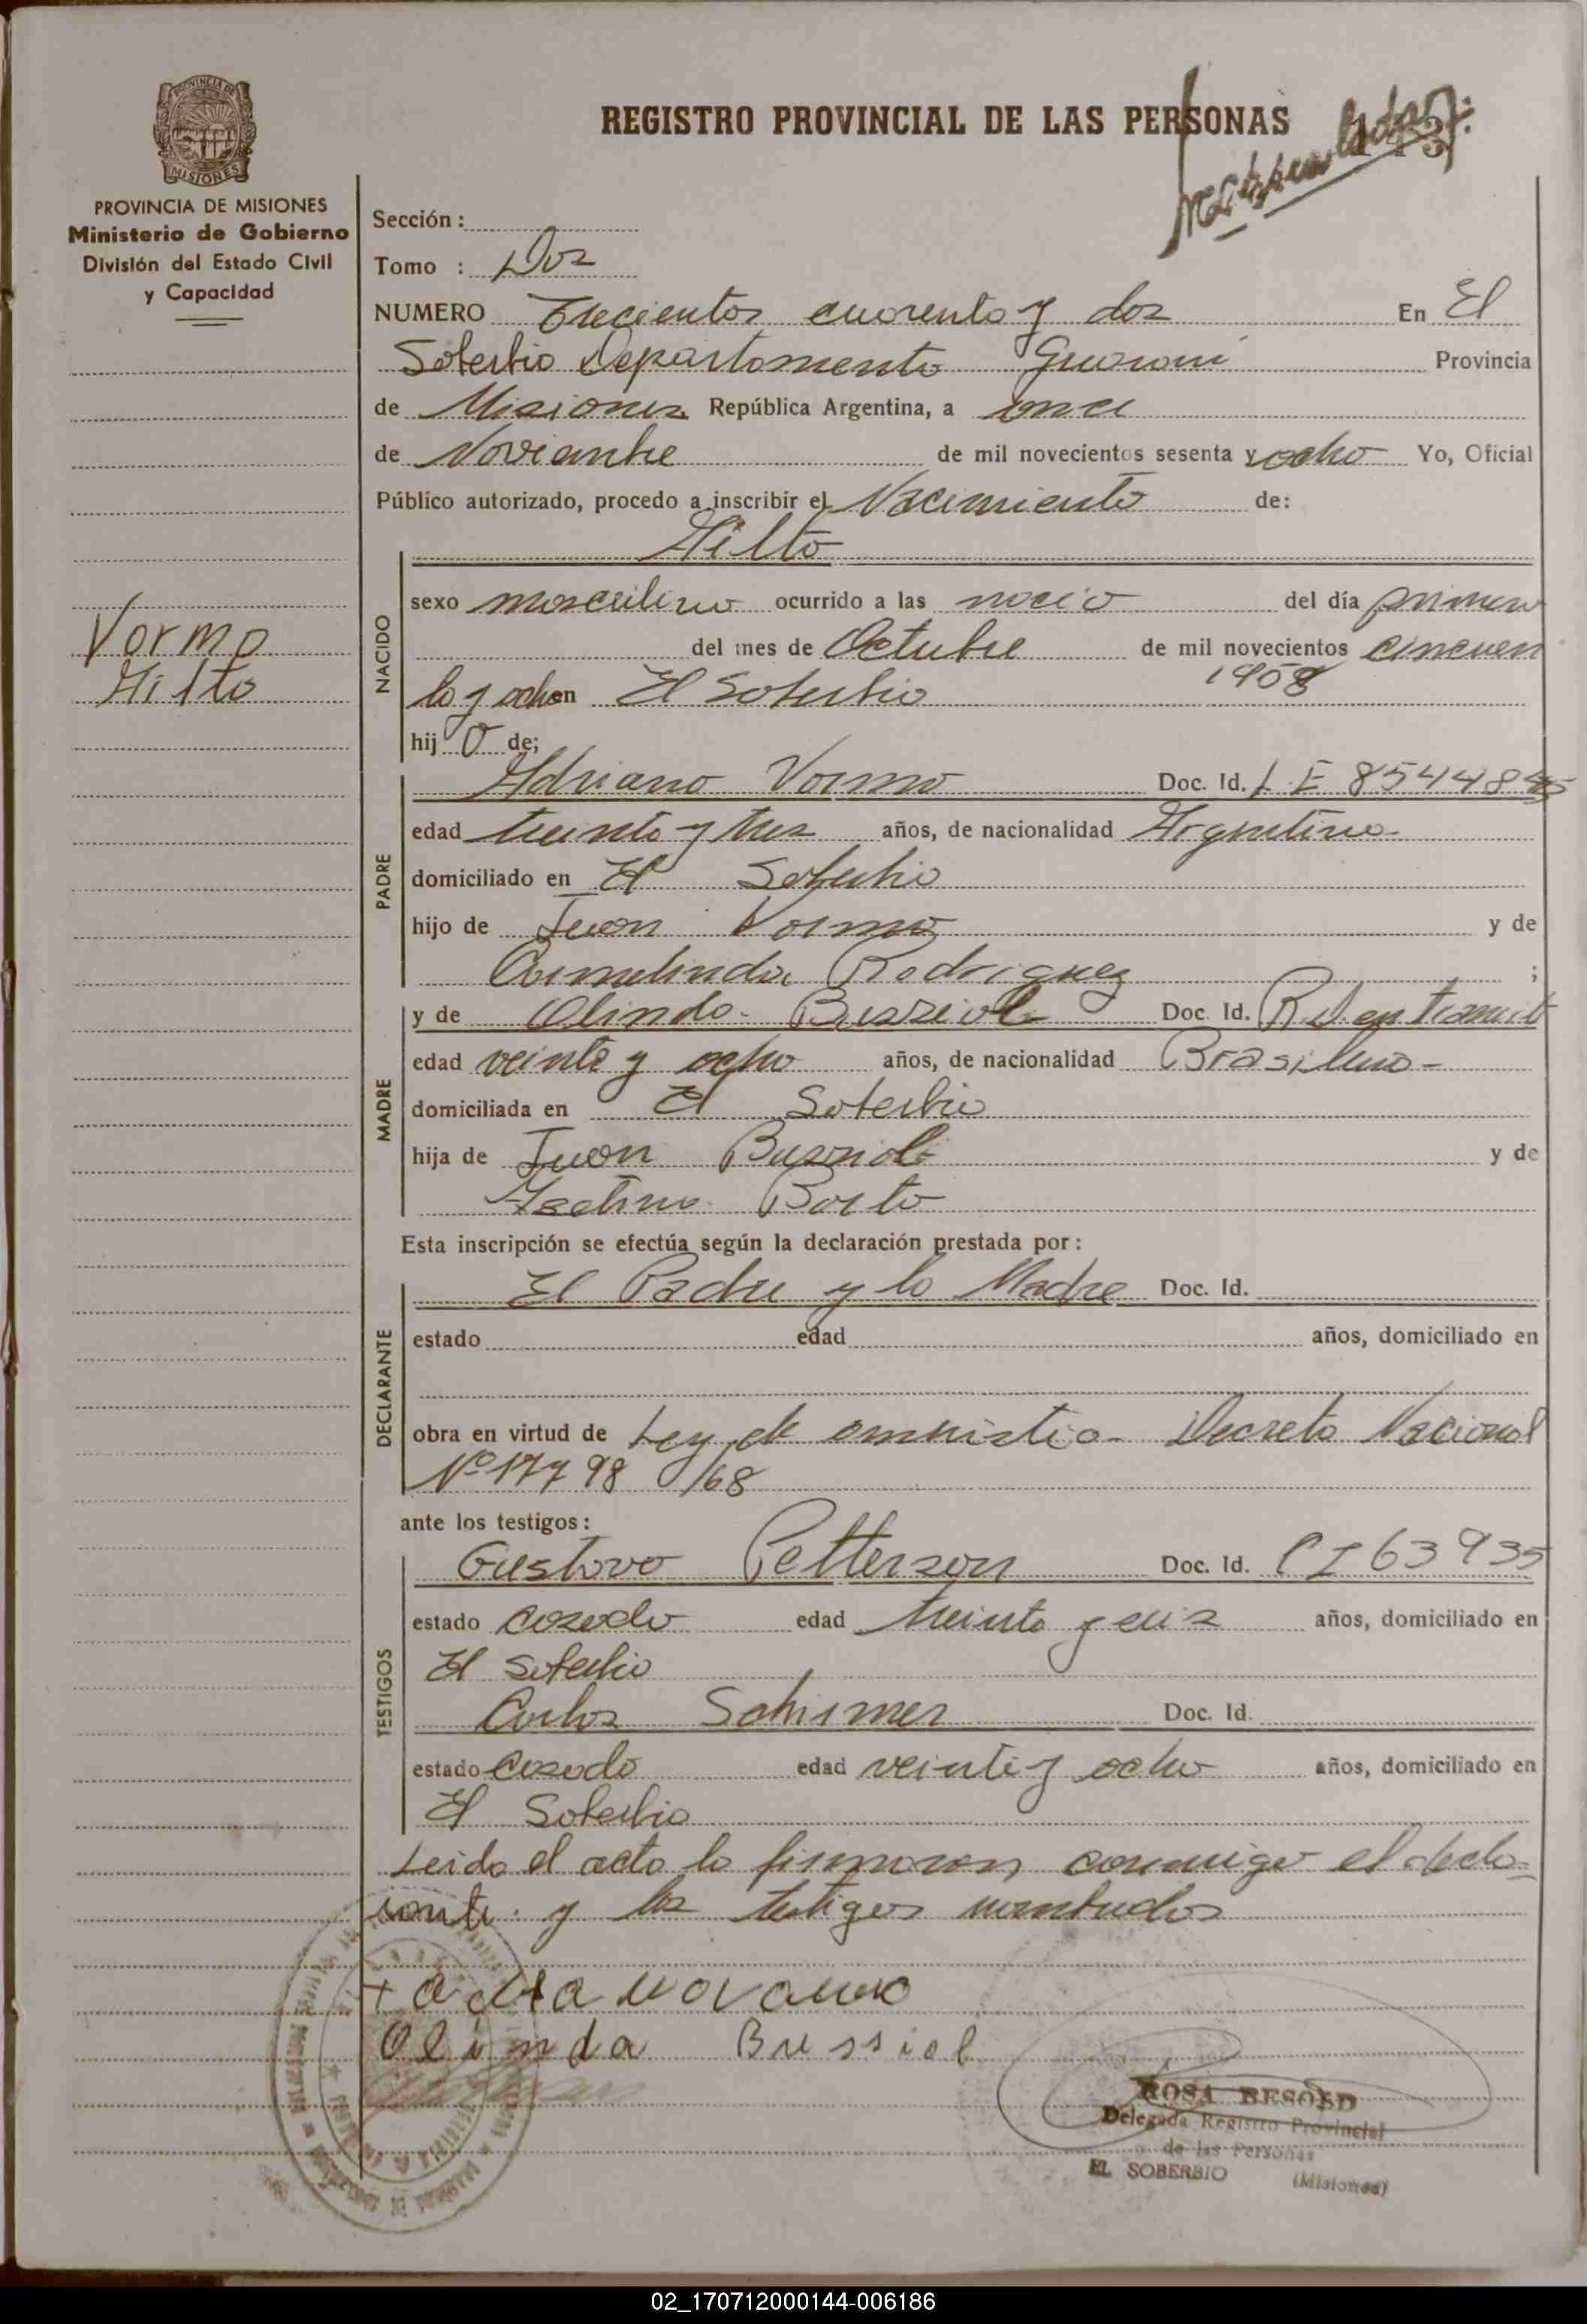 PROVINCIA DE
MISIONES
PROVINCIA DE MISIONES
Ministerio de Gobierno
División del Estado Civil
y Capacidad
REGISTRO PROVINCIAL DE LAS PERSONAS
Sección :
Tomo : Dos
NUMERO Trecientos cuarenta y dos En El
Soberbio Departamento Guarani Provincia
de Misiones República Argentina, a once
de Noviembre de mil novecientos sesenta y ocho Yo, Oficial
Público autorizado, procedo a inscribir el Nacimiento de:
Hilto
NACIDO
sexo masculino ocurrido a las del día primero
Vormo
Hilto
del mes de Octubre de mil novecientos cincuen
1958
ta y ocho en El Soberbio
hij o de;
PADRE
Adriano Vormo Doc. Id. L E
edad treinta y tres años, de nacionalidad Argentino
domiciliado en El Soberbio
hijo de Juan Vormo y de
Carmelinda Rodriguez ;
MADRE
y de Olinda Bussiol Doc. Id. en tramite
edad veinte y ocho años, de nacionalidad Brasilera
domiciliada en El Soberbio
hija de Juan Bussiol y de
Esta inscripción se efectúa según la declaración prestada por:
DECLARANTE
El Padre y la Madre Doc. Id.
estado edad años, domiciliado en
obra en virtud de Ley de amnistia Decreto Nacional
Nº 17798/68
ante los testigos:
TESTIGOS
Gustavo Petterson Doc. Id. C I 63935
estado casado edad treinta y seis años, domiciliado en
El Soberbio
Carlos Doc. Id.
estado casado edad veinte y ocho años, domiciliado en
El Soberbio
Leida el acta la firmaron conmigo el decla-
rante y los testigos nombrados
Olinda Bussiol
ROSA BESOLD
Delegada Registro Provincial
de las Personas
EL SOBERBIO (Misiones)
02_170712000144-006186